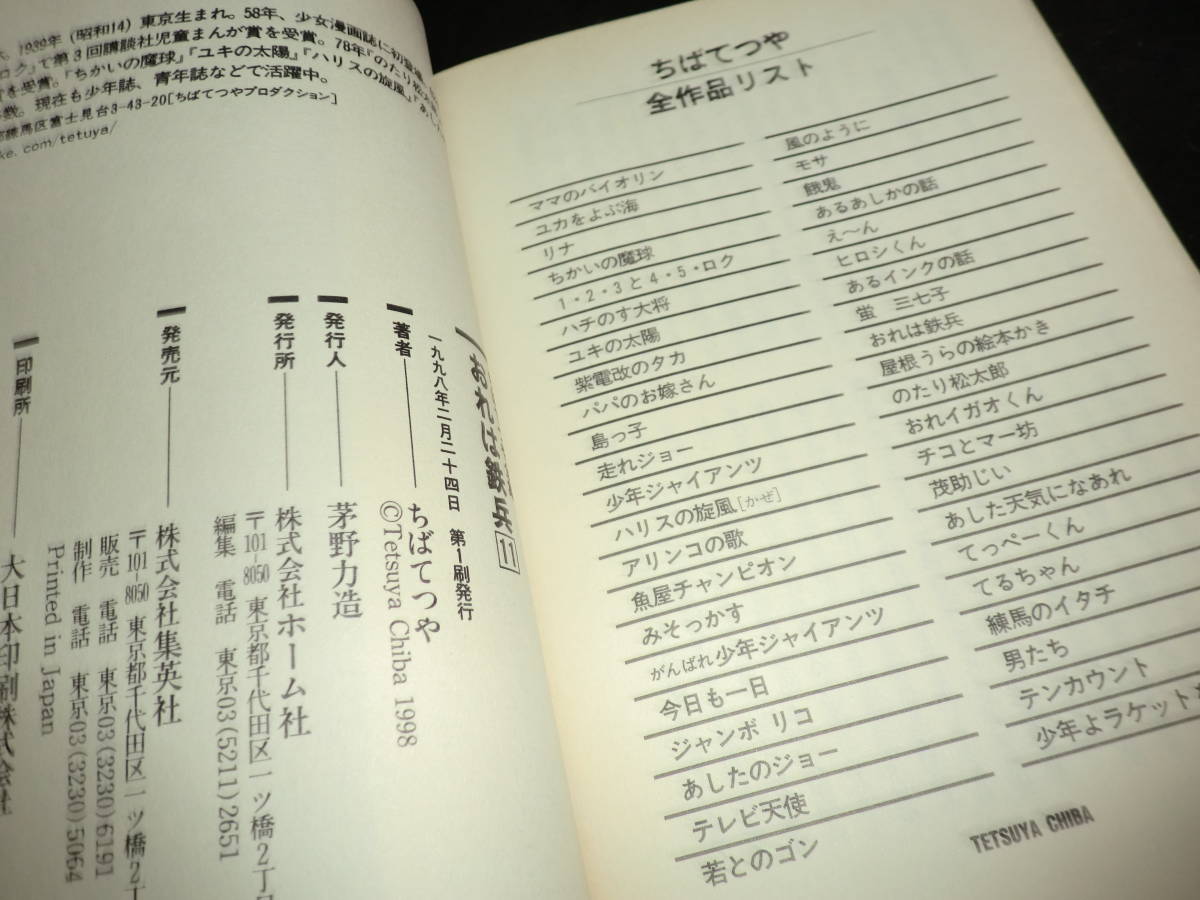 1939年(昭和14)東京生まれ。58年、少女漫画誌に初
ロク』で第3回講談社児童まんが賞を受賞。78年『のたり松
を受賞。『ちかいの魔球』『ユキの太陽』『ハリスの旋風』『あし
数。現在も少年誌、青年誌などで活躍中。
練馬区富士見台3-43-20[ちばてつやプロダクション]
ke.com/tetuya/
おれは鉄兵 11
一九九八年二月二十四日 第1刷発行
著者 ちばてつや
©Tetsuya Chiba 1998
発行人 茅野力造
発行所 株式会社ホーム社
〒101-8050 東京都千代田区一ツ橋2丁
編集 電話 東京03(5211)2651
発売元 株式会社集英社
〒101-8050 東京都千代田区一ツ橋2丁
販売 電話 東京03(3230)6191
制作 電話 東京03(3230)5064
Printed in Japan
印刷所 大日本印刷株式会社
ちばてつや
全作品リスト
ママのバイオリン
ユカをよぶ海
リナ
ちかいの魔球
1・2・3と4・5・ロク
ハチのす大将
ユキの太陽
紫電改のタカ
パパのお嫁さん
島っ子
走れジョー
少年ジャイアンツ
ハリスの旋風[かぜ]
アリンコの歌
魚屋チャンピオン
みそっかす
がんばれ少年ジャイアンツ
今日も一日
ジャンボ リコ
あしたのジョー
テレビ天使
若とのゴン
風のように
モサ
餓鬼
あるあしかの話
え〜ん
ヒロシくん
あるインクの話
蛍 三七子
おれは鉄兵
屋根うらの絵本かき
のたり松太郎
おれイガオくん
チコとマー坊
茂助じい
あした天気になあれ
てっぺーくん
てるちゃん
練馬のイタチ
男たち
テンカウント
少年よラケット
TETSUYA CHIBA